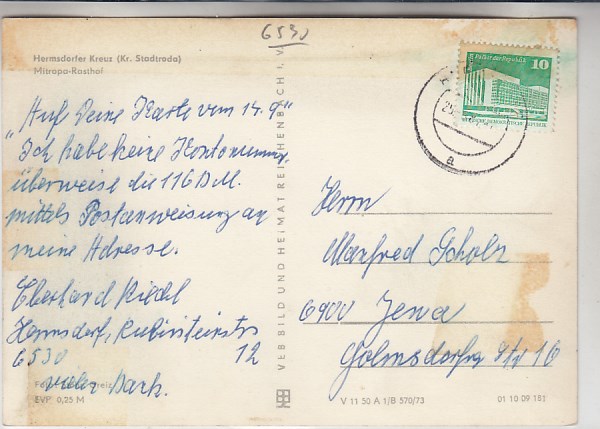 6530
Hermsdorfer Kreuz (Kr. Stadtroda)
Mitropa-Rasthof
„Auf Deine Karte vom 14.9“
Ich habe keine Kontonummer,
überweise die 116 DM.
mittels Postanweisung an
meine Adresse.
Eberhard Riedel
Hermsdorf, Rubinsteinstr
6530 12
vielen Dank.
EVP 0,25 M
VEB BILD UND HEIMAT REICHENBACH I. V.
Palast der Republik
10
DEUTSCHE DEMOKRATISCHE REPUBLIK
a
Herrn
Manfred Scholz
6900 Jena
Golmsdorfer Str 16
V 11 50 A 1/B 570/73
01 10 09 151